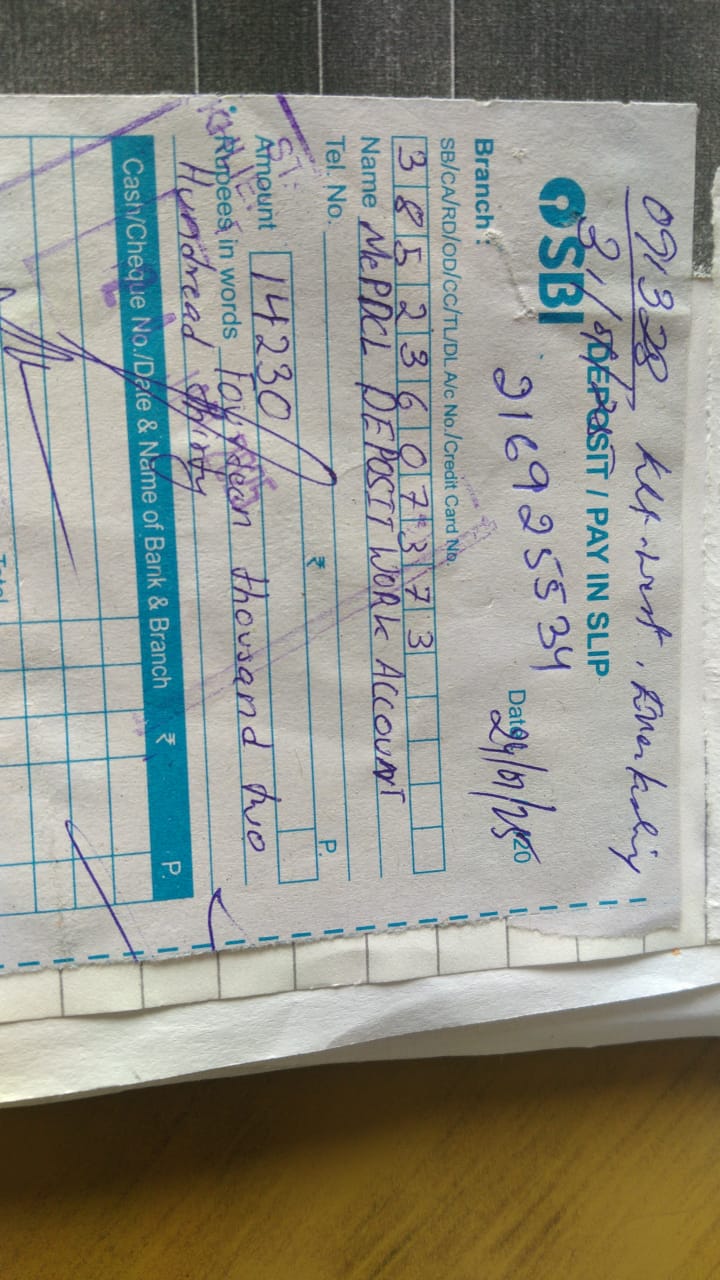 091328
SBI DEPOSIT / PAY IN SLIP
Branch: 2169255534 Date 24/01/25 20
SB/CA/RD/OD/CC/TL/DL A/c No./Credit Card No.
38523607373
Name MePDCL DEPOSIT WORK ACCOUNT
Tel. No.
₹ P.
Amount 14230/
Rupees in words Fourtean thousand two
Hundread thirty
Cash/Cheque No./Date & Name of Bank & Branch ₹ P.
Total